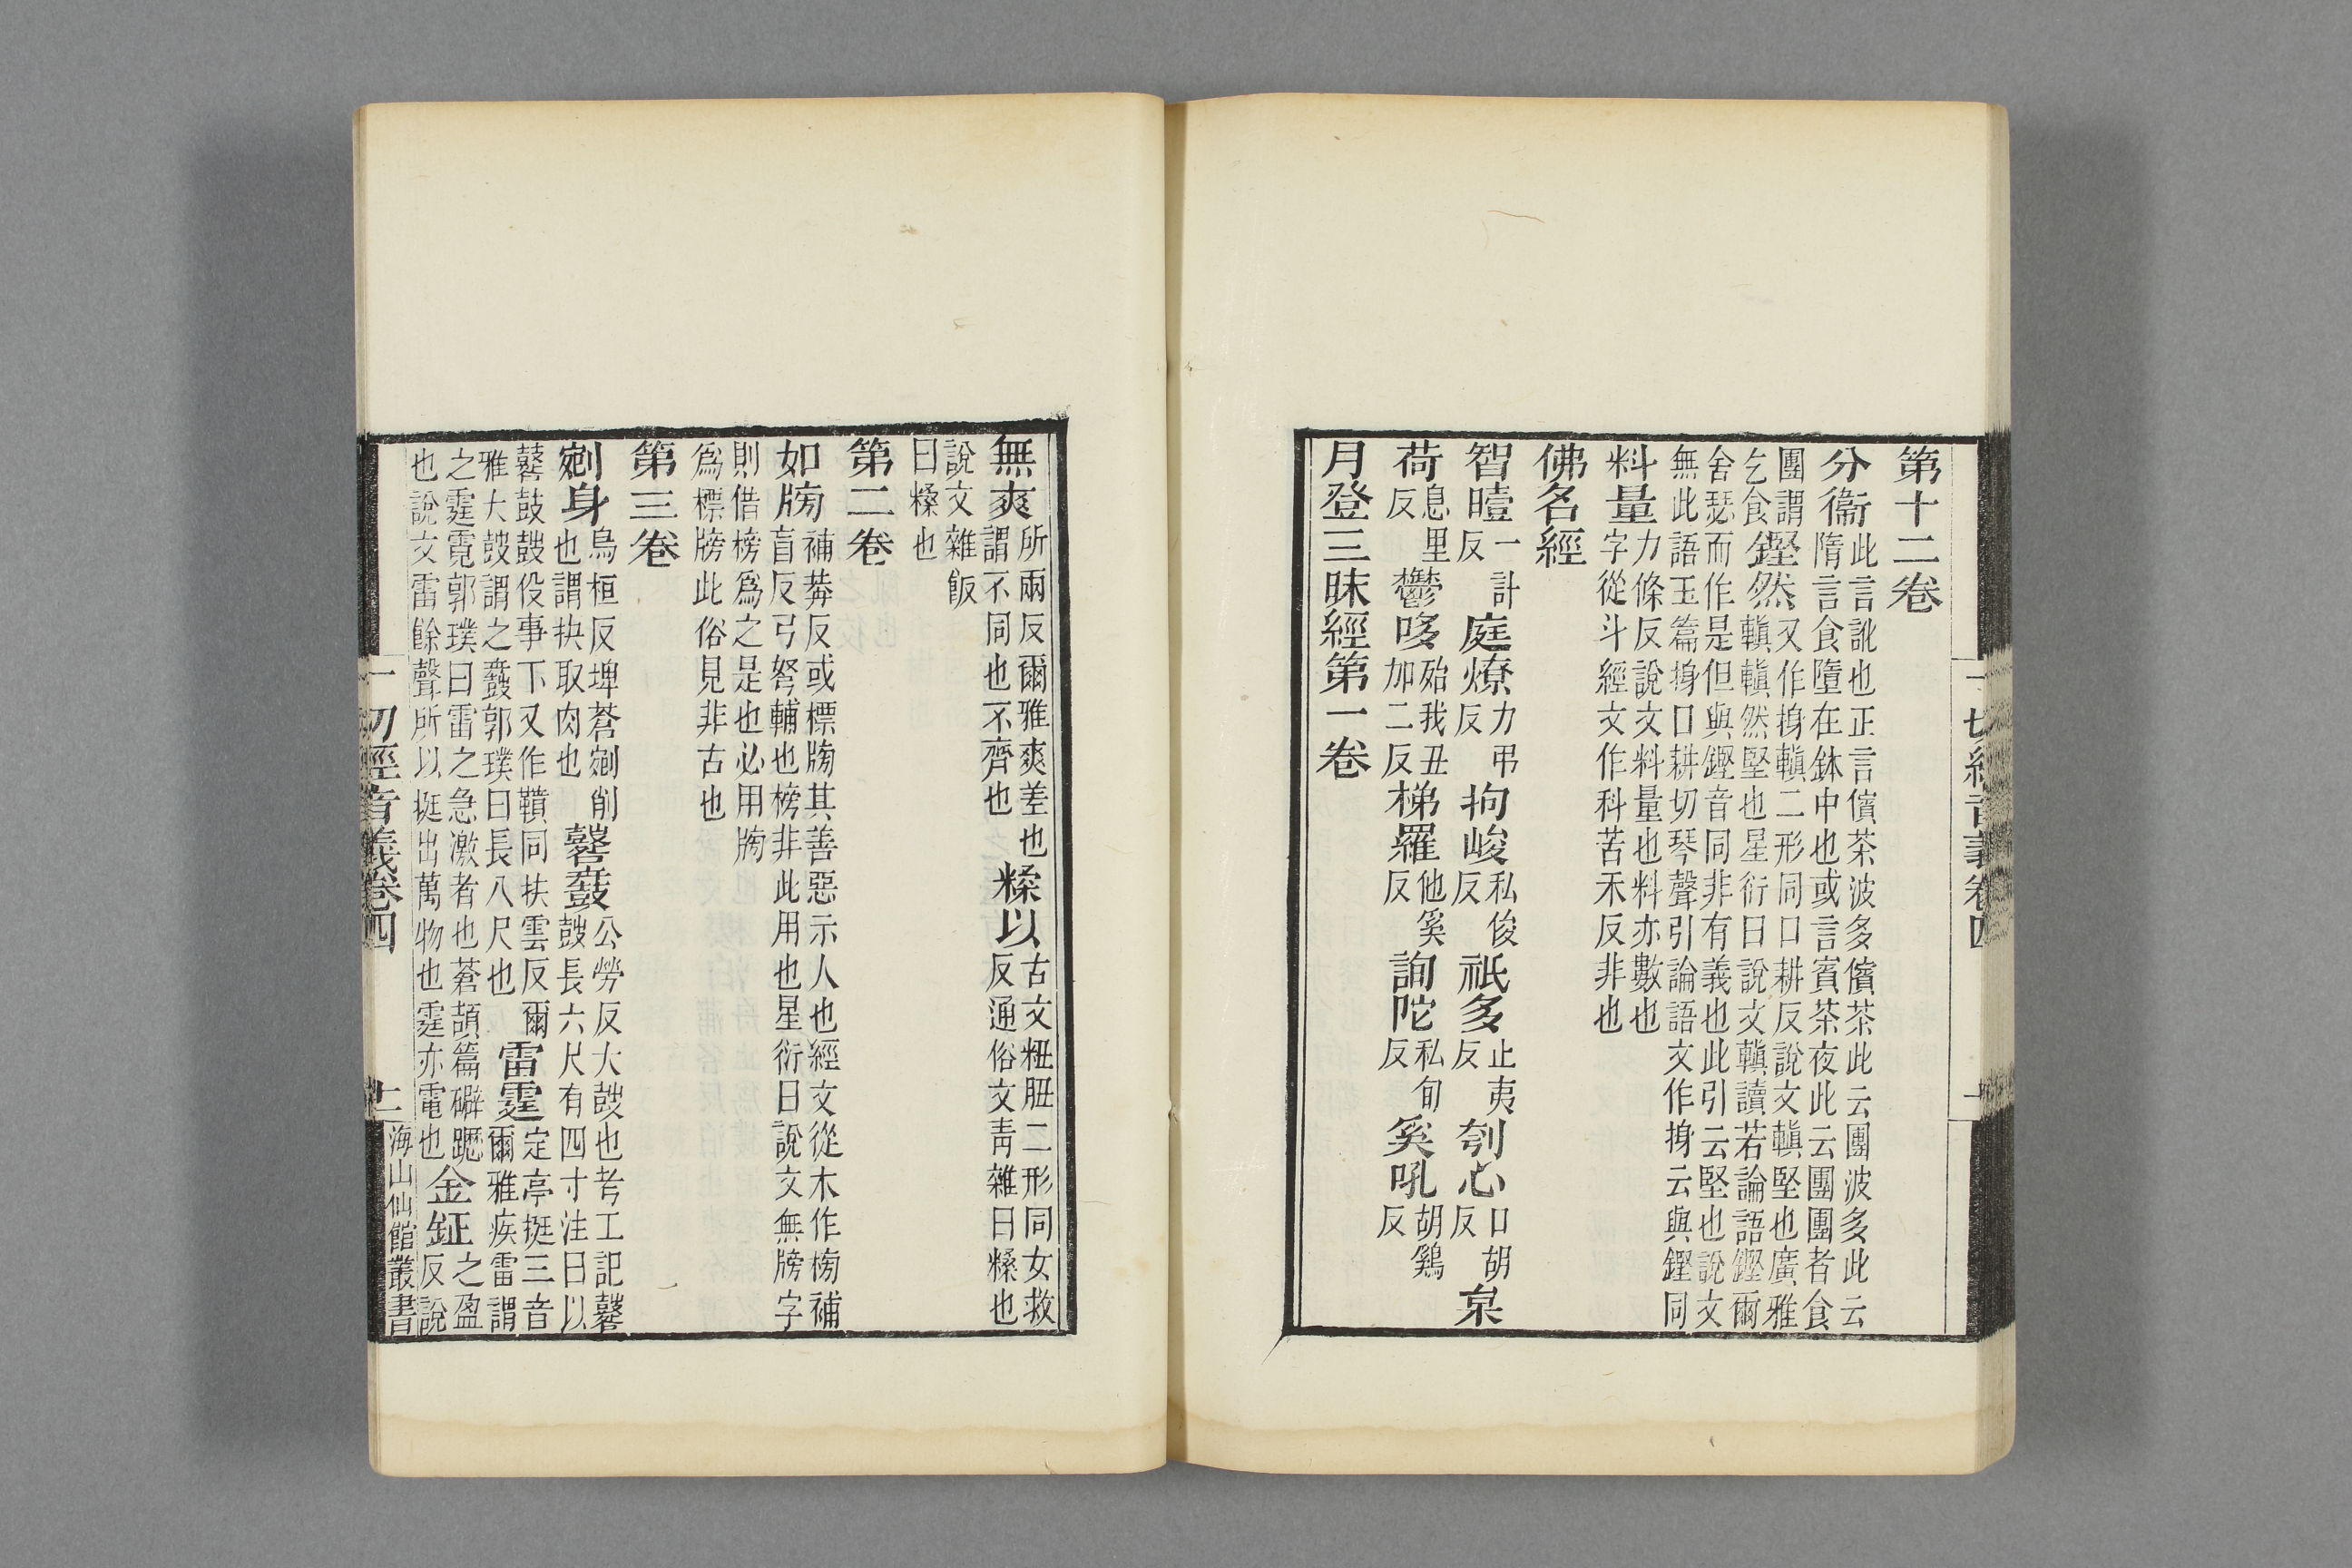 第十二卷
分衞此言訛也正言儐茶波多儐茶此云團波多此云
隋言食墮在鉢中也或言賓茶夜此云團團者食
團謂鏗然又作挏轒二形同口耕反說文轒堅也廣雅
乞食轒轒然堅也星衍曰說文轒讀若論語鏗爾
舍瑟而作是但與鏗音同非有義也此引云堅也說文
無此語玉篇挏口耕切琴聲引論語文作挏云與鏗同
料量力條反說文料量也料亦數也
字從斗經文作科苦禾反非也
佛名經
智曀一計反庭燎力弔反拘峻私俊反祇多止夷反刳心口胡反枲
荷息里反鬱哆殆我丑加二反梯羅他奚反詢陀私旬反奚吼胡鷄反
月登三昧經第一卷
一切經音義卷四
無爽所兩反爾雅爽差也謂不同也不齊也糅以古文粈䏔二形同女救反通俗文青雜曰糅也
說文雜飯
曰糅也
第二卷
如牓補莽反或標牓其善惡示人也經文從木作榜補
盲反弓弩輔也榜非此用也星衍曰說文無牓字
則借榜爲之是也必用牓
爲標牓此俗見非古也
第三卷
剜身烏桓反埤蒼剜削也謂抉取肉也鼛鼖公勞反大鼓也考工記鼛
鼓長六尺有四寸注曰以
鼛鼓鼓役事下又作鞼同扶雲反爾
雅大鼓謂之鼖郭璞曰長八尺也雷霆定亭挺三音
爾雅疾雷謂
之霆霓郭璞曰雷之急激者也蒼頡篇礔䨟
也說文雷餘聲所以挺出萬物也霆亦電也金鉦之盈反說
一切經音義卷四
十一
海山仙館叢書